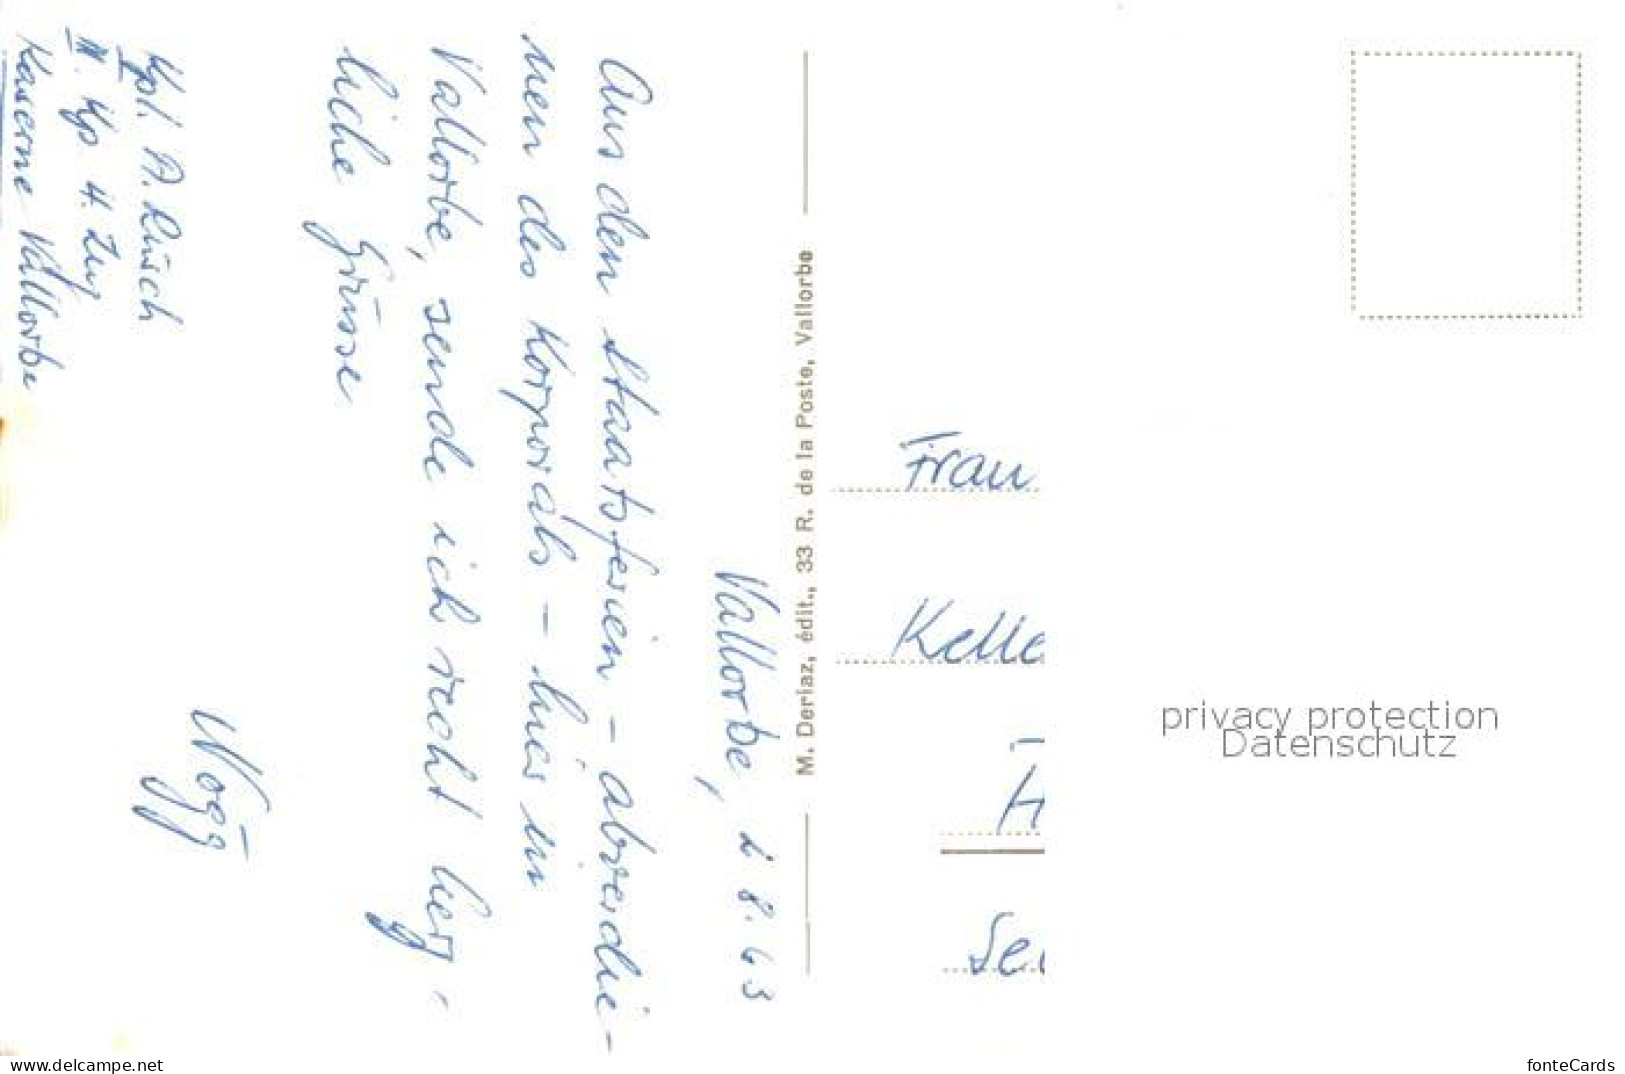 Vallorbe, 2 8. 63
Aus den Staatsferien – abverdie-
nen des Korporals – hier in
Vallorbe, sende ich recht herz-
liche Grüsse.
Kpl. A. Rüsch
III. Kp 4. Zug
Kaserne Vallorbe
M. Deriaz, édit., 33 R. de la Poste, Vallorbe
Frau
Kelle
H
privacy protection
Datenschutz
oldthing.net
fonteCards